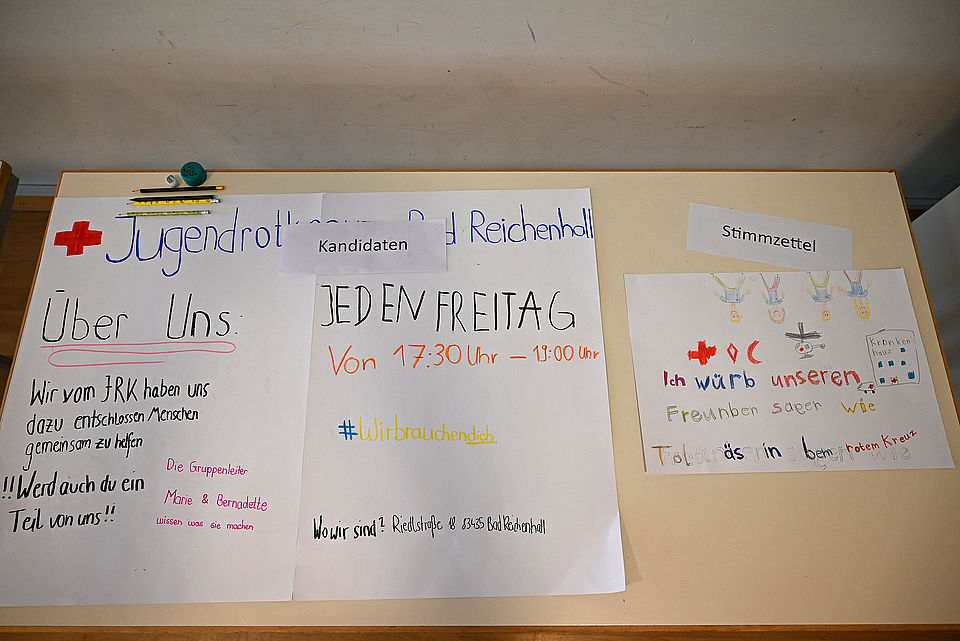 Jugendrotkreuz Bad Reichenhall
Kandidaten
Über Uns:
Wir vom JRK haben uns
dazu entschlossen Menschen
gemeinsam zu helfen
!!Werd auch du ein
Teil von uns!!
Die Gruppenleiter
Marie & Bernadette
wissen was sie machen
JEDEN FREITAG
Von 17:30 Uhr – 19:00 Uhr
#Wirbrauchendich
Wo wir sind? Riedlstraße 18 83435 Bad Reichenhall
Stimmzettel
Kranken
haus
Ich würb unseren
Freunben sager wie
in bem rotem Kreuz